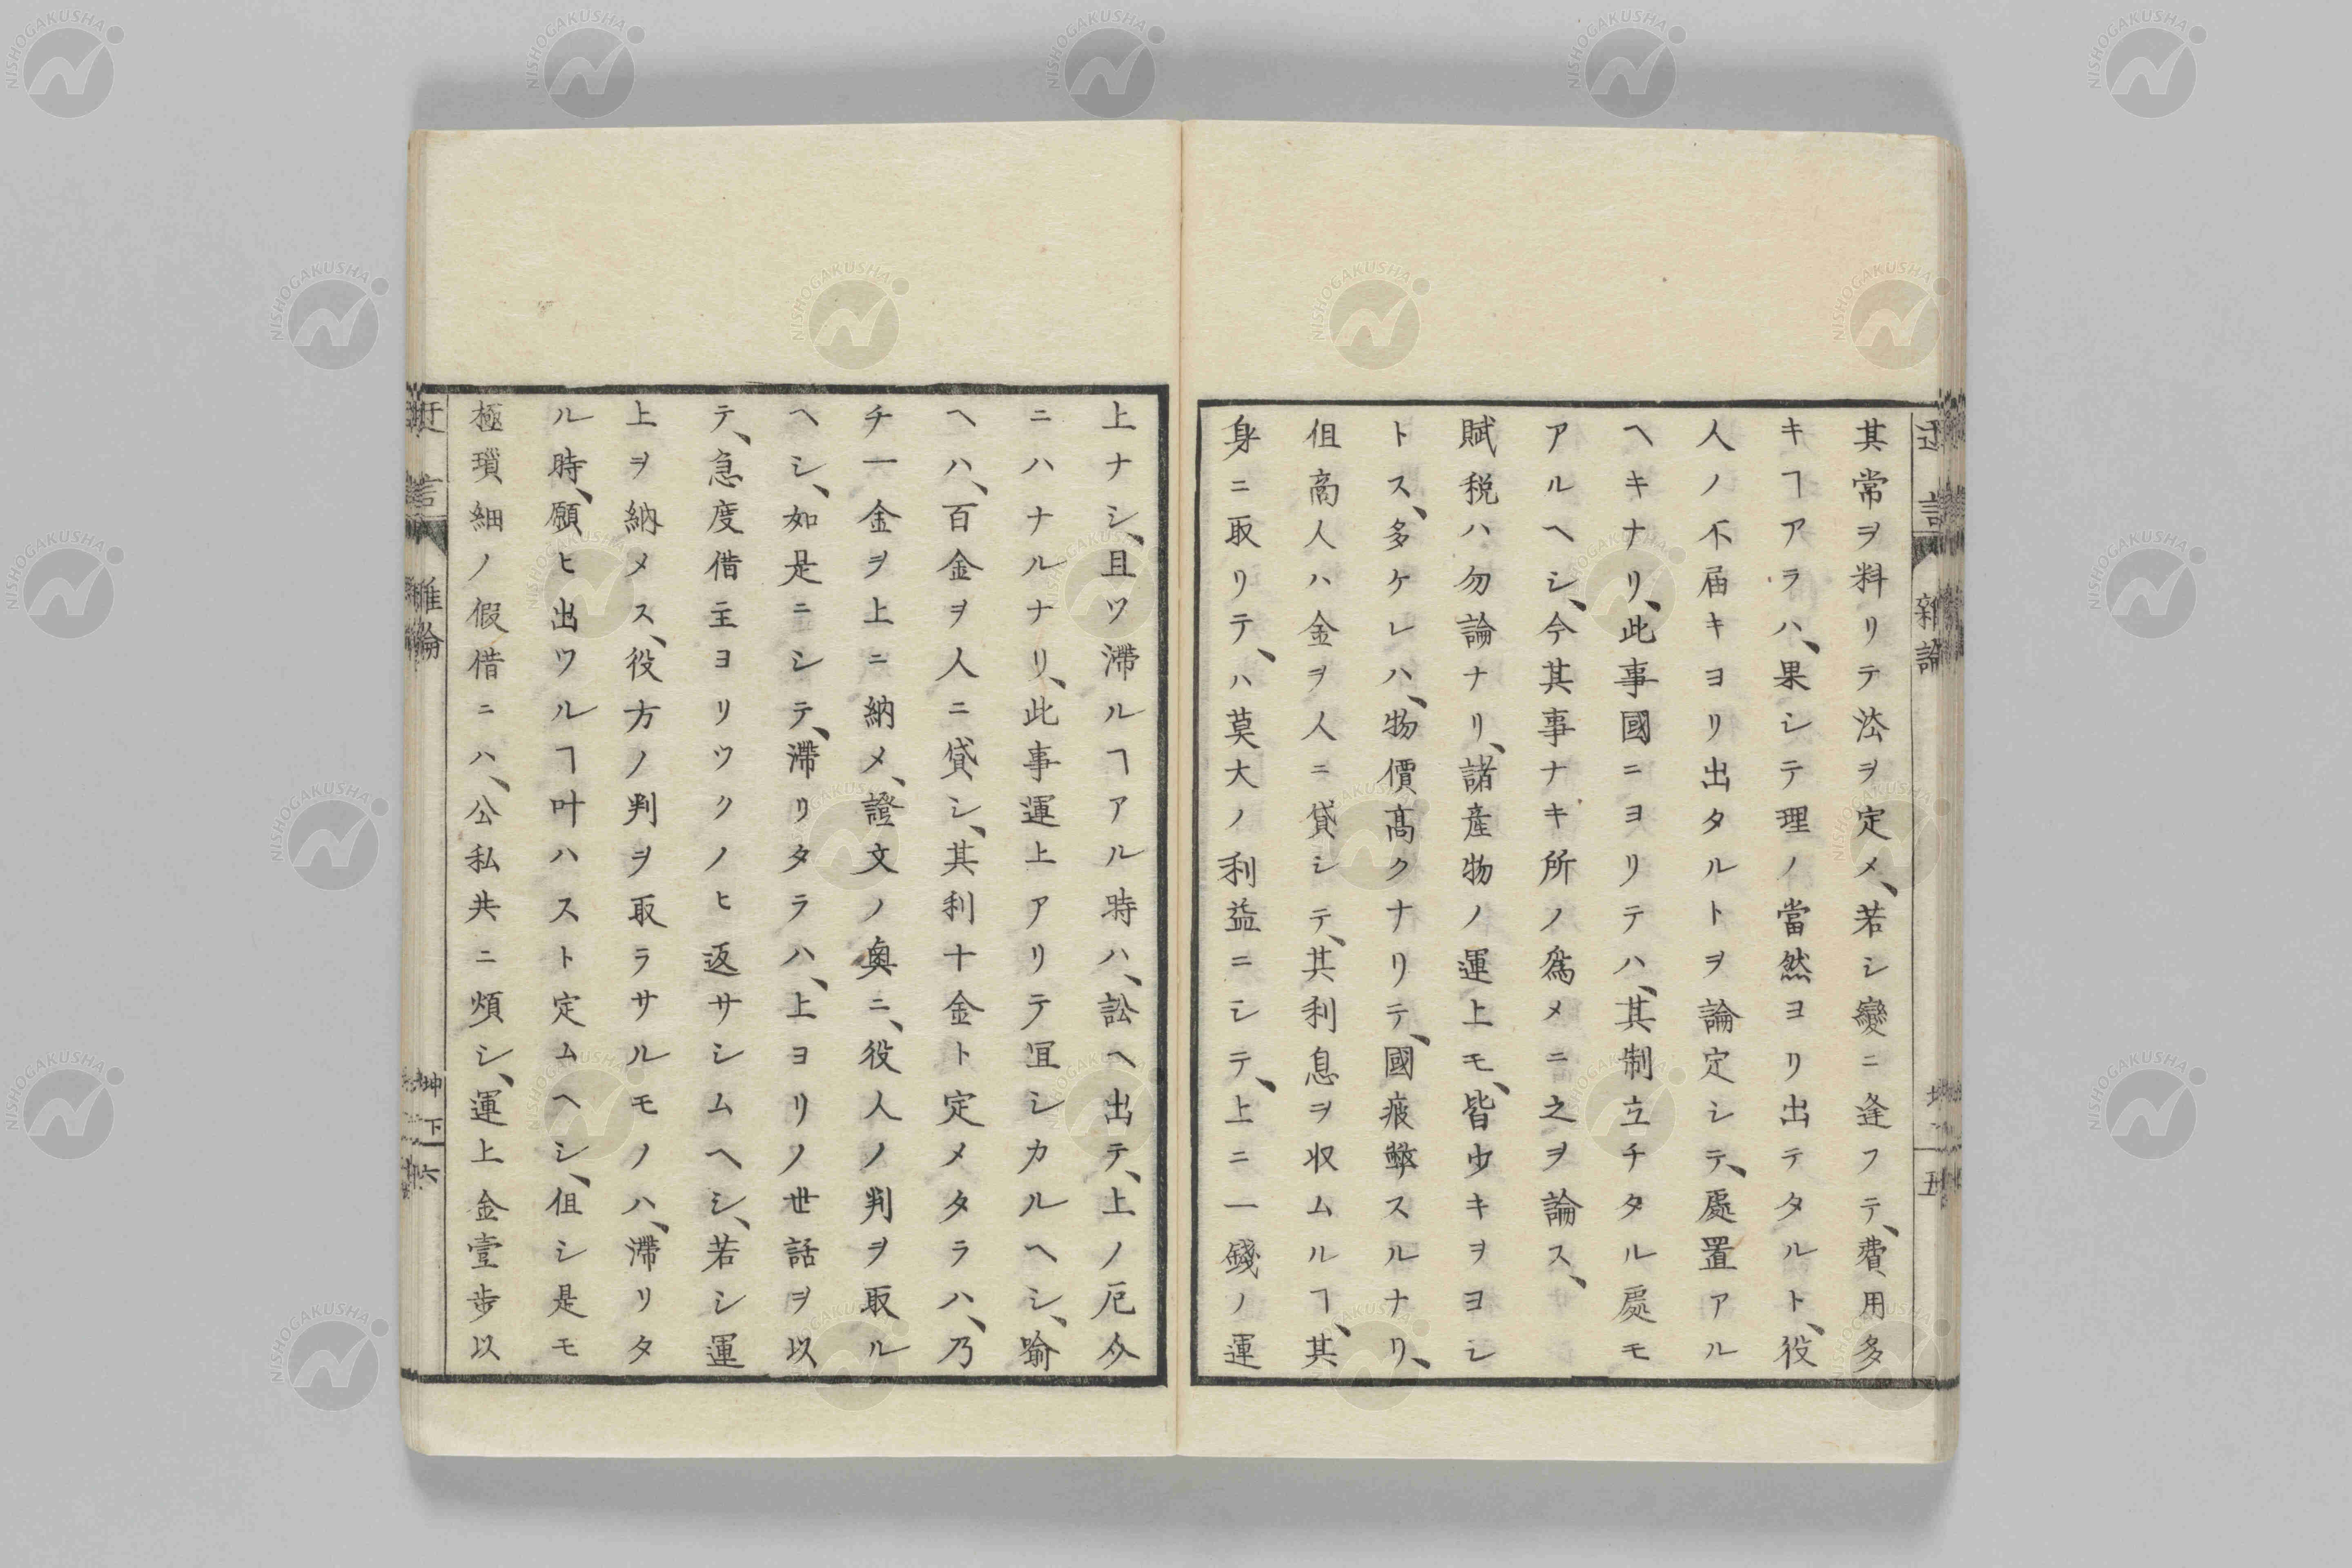 其常ヲ料リテ法ヲ定メ、若シ變ニ逢フテ、費用多
キヿアラハ、果シテ理ノ當然ヨリ出テタルト、役
人ノ不届キヨリ出タルトヲ論定シテ、處置アル
ヘキナリ、此事國ニヨリテハ、其制立チタル處モ
アルヘシ、今其事ナキ所ノ爲メニ之ヲ論ス、
賦税ハ勿論ナリ、諸産物ノ運上モ、皆少キヲヨシ
トス、多ケレハ、物價髙クナリテ、國疲弊スルナリ、
但商人ハ金ヲ人ニ貸シテ、其利息ヲ収ムルヿ、其
身ニ取リテ、ハ莫大ノ利益ニシテ、上ニ一錢ノ運
上ナシ、且ツ滯ルヿアル時ハ、訟ヘ出テ、上ノ厄介
ニハナルナリ、此事運上アリテ冝シカルヘシ、喩
ヘハ、百金ヲ人ニ貸シ、其利十金ト定メタラハ、乃
チ一金ヲ上ニ納メ、證文ノ奥ニ、役人ノ判ヲ取ル
ヘシ、如是ニシテ、滯リタラハ、上ヨリノ世話ヲ以
テ、急度借主ヨリツクノヒ返サシムヘシ、若シ運
上ヲ納メス、役方ノ判ヲ取ラサルモノハ、滯リタ
ル時、願ヒ出ツルヿ叶ハスト定ムヘシ、但シ是モ
極瑣細ノ假借ニハ、公私共ニ煩シ、運上金壹歩以
迂言
雜論
坤下
六
NISHOGAKUSHA